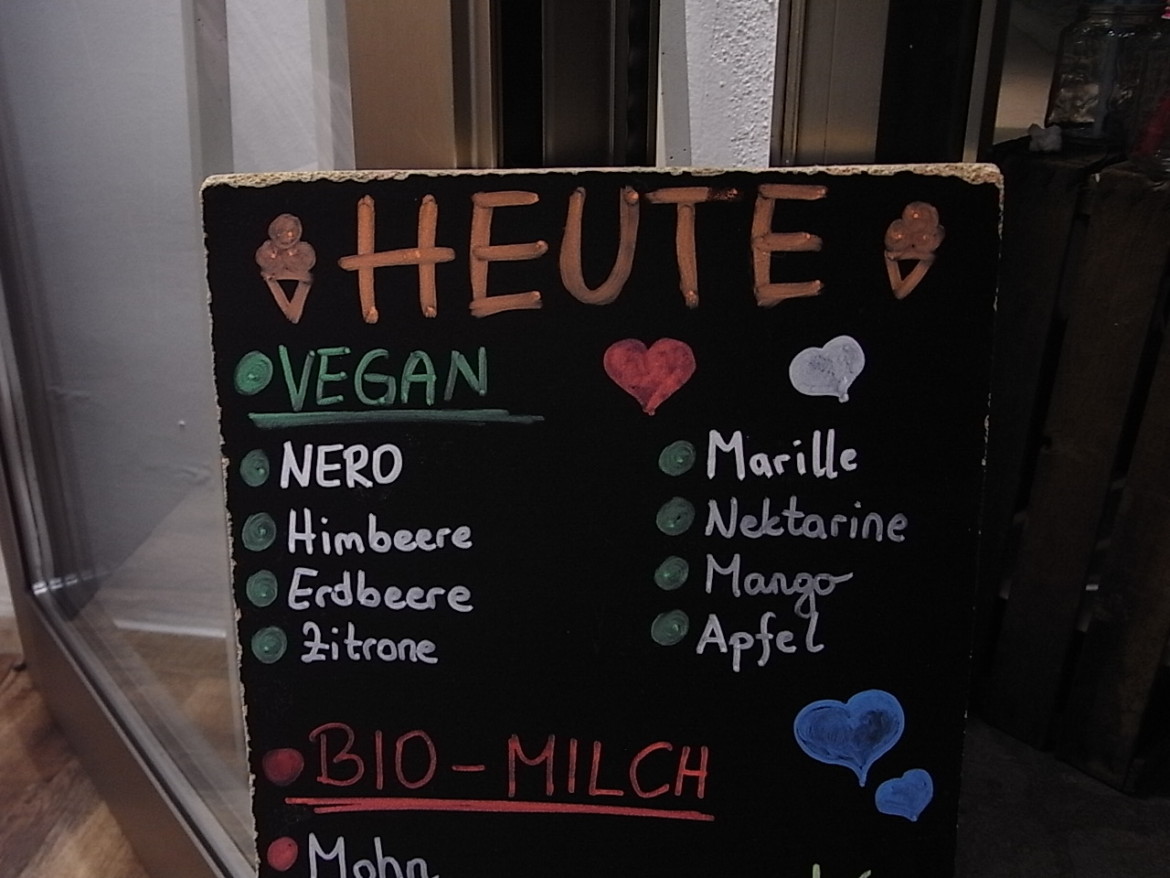 HEUTE
VEGAN
NERO
Himbeere
Erdbeere
Zitrone
Marille
Nektarine
Mango
Apfel
BIO-MILCH
Mohn